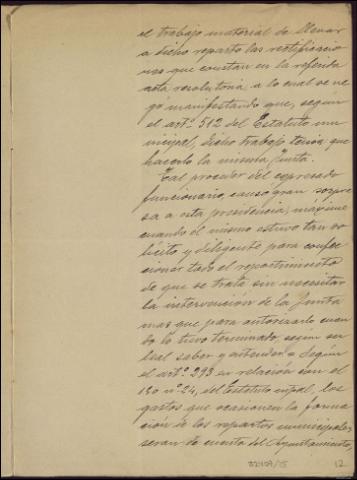 el trabajo material de llenar
a dicho reparto las rectificacio-
nes que constan en la referida
acta resolutoria, a lo cual se ne-
gó manifestando que, segun
el artº 512 del Estatuto mu-
nicipal, dicho trabajo tenia que
hacerlo la misma Junta.
Tal proceder del expresado
funcionario, causó gran sorpre-
sa a esta presidencia, máxime
cuando el mismo estuvo tan so-
lícito y diligente para confec-
cionar todo el repartimiento
de que se trata sin necesitar
la intervención de la Junta
mas que para autorizarlo cuan-
do lo tuvo terminado segun su
leal saber y entender. Segun
el artº 293 en relación con el
150 nº 24, del Estatuto mpal, los
gastos que ocasionen la forma-
ción de los repartos municipales,
seran de cuenta del Ayuntamiento,
12